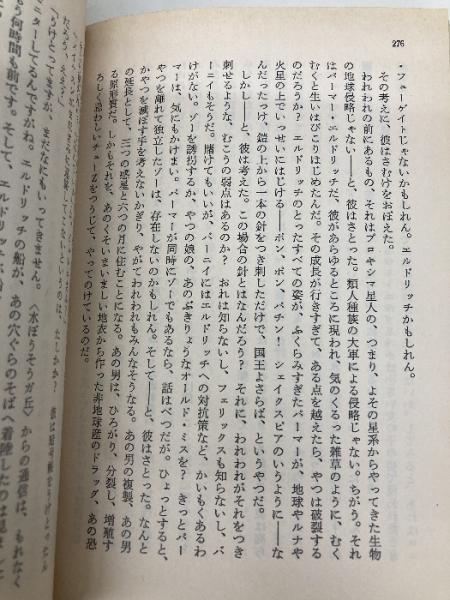 276
・フューゲイトじゃないかもしれん。エルドリッチかもしれん。
その考えに、彼はさむけをおぼえた。
われわれの前にあるもの、それはプロキシマ星人の、つまり、よその星系からやってきた生物
の地球侵略じゃない――と、彼はさとった。類人種族の大軍による侵略じゃない。ちがう。それ
はパーマー・エルドリッチだ。彼があらゆるところに現われ、気のくるった雑草のように、むく
むくと生いはびこりはじめたんだ。その成長が行きすぎて、ある点を越えたら、やつは破裂する
のだろうか？　エルドリッチのとったすべての姿が、ふくらみすぎたパーマーが、地球やルナや
火星の上でいっせいにはじける――ポン、ポン、パチン！　シェイクスピアのいうように――な
んだったっけ、鎧の上から一本の針をつき刺しただけで、国王よさらば、というやつだ。
しかし――と、彼は考えた。この場合の針とはなんだろう？　それに、われわれがそれをつき
刺せるような、むこうの弱点はあるのか？　おれは知らないし、フェリックスも知らないし、バ
ーニイもそうだ。賭けてもいいが、バーニイにはエルドリッチへの対抗策など、かいもくあるわ
けがない。ゾーを誘拐するか、やつの娘の、あのぶきりょうなオールド・ミスを？　きっとパー
マーは、気にもかけまい。パーマーが同時にゾーでもあるなら、話はべつだが。ひょっとすると、
やつを離れて独立したゾーは、存在しないのかもしれん。そして――と、彼はさとった。なんと
かやつを滅ぼす手を考えないかぎり、やがてわれわれもみんなそうなる。あの男の複製、あの男
の延長として、三つの惑星と六つの月に住むことになる。あの男は、ひろがり、分裂し、増殖す
る原形質だ。しかもそれを、あのくそいまいましい地衣から作った非地球産のドラッグ、あの恐
ろしく忌わしいチューZをつうじて、やってのけているのだ。
まだなにもいってきません。
〈水ぼうそうガ丘〉からの通信は、もれなく
ニターしてるんですがね。エルドリッチの船が、あの穴ぐらのそばへ着陸したのは
もう何時間も前です。そして、エルドリッチが